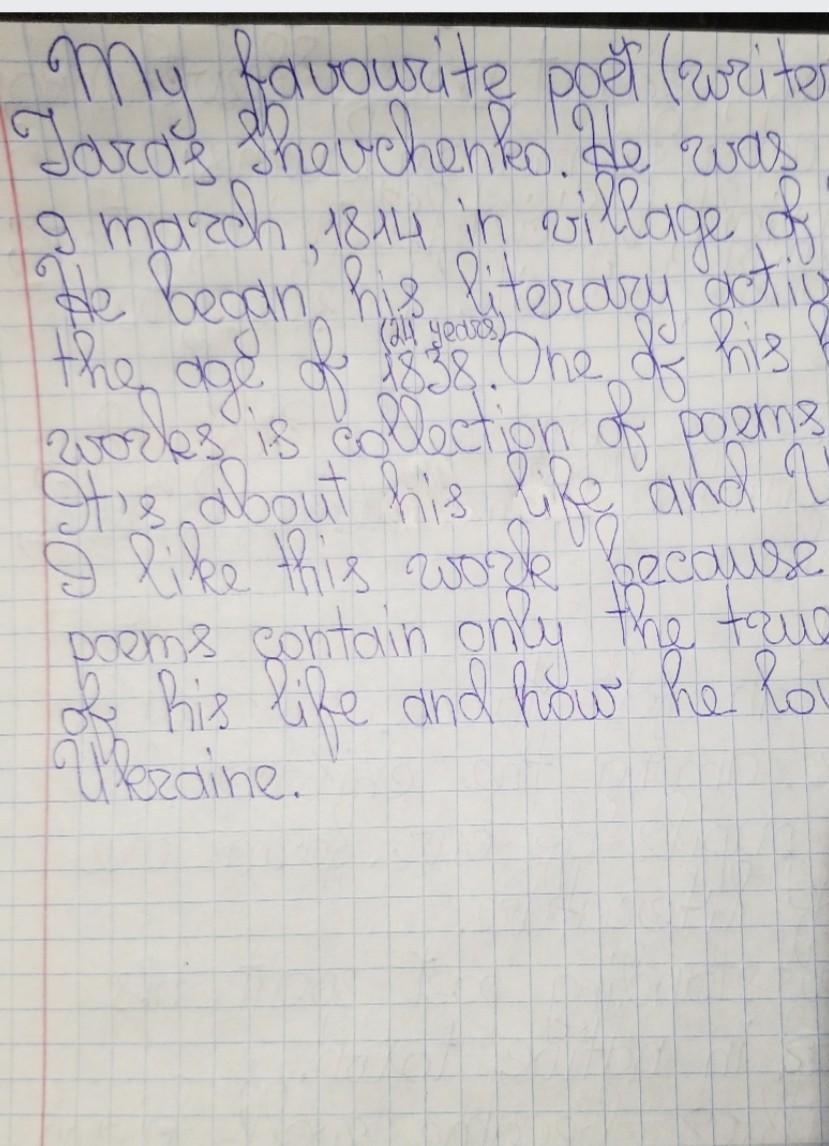 My favourite poet (writer
Taras Shevchenko. He was
9 march, 1814 in village of
He began his literary activ
(24 years)
the age of 1838. One of his
works is collection of poems
It's about his life and U
I like this work because
poems contain only the true
of his life and how he lov
Ukraine.